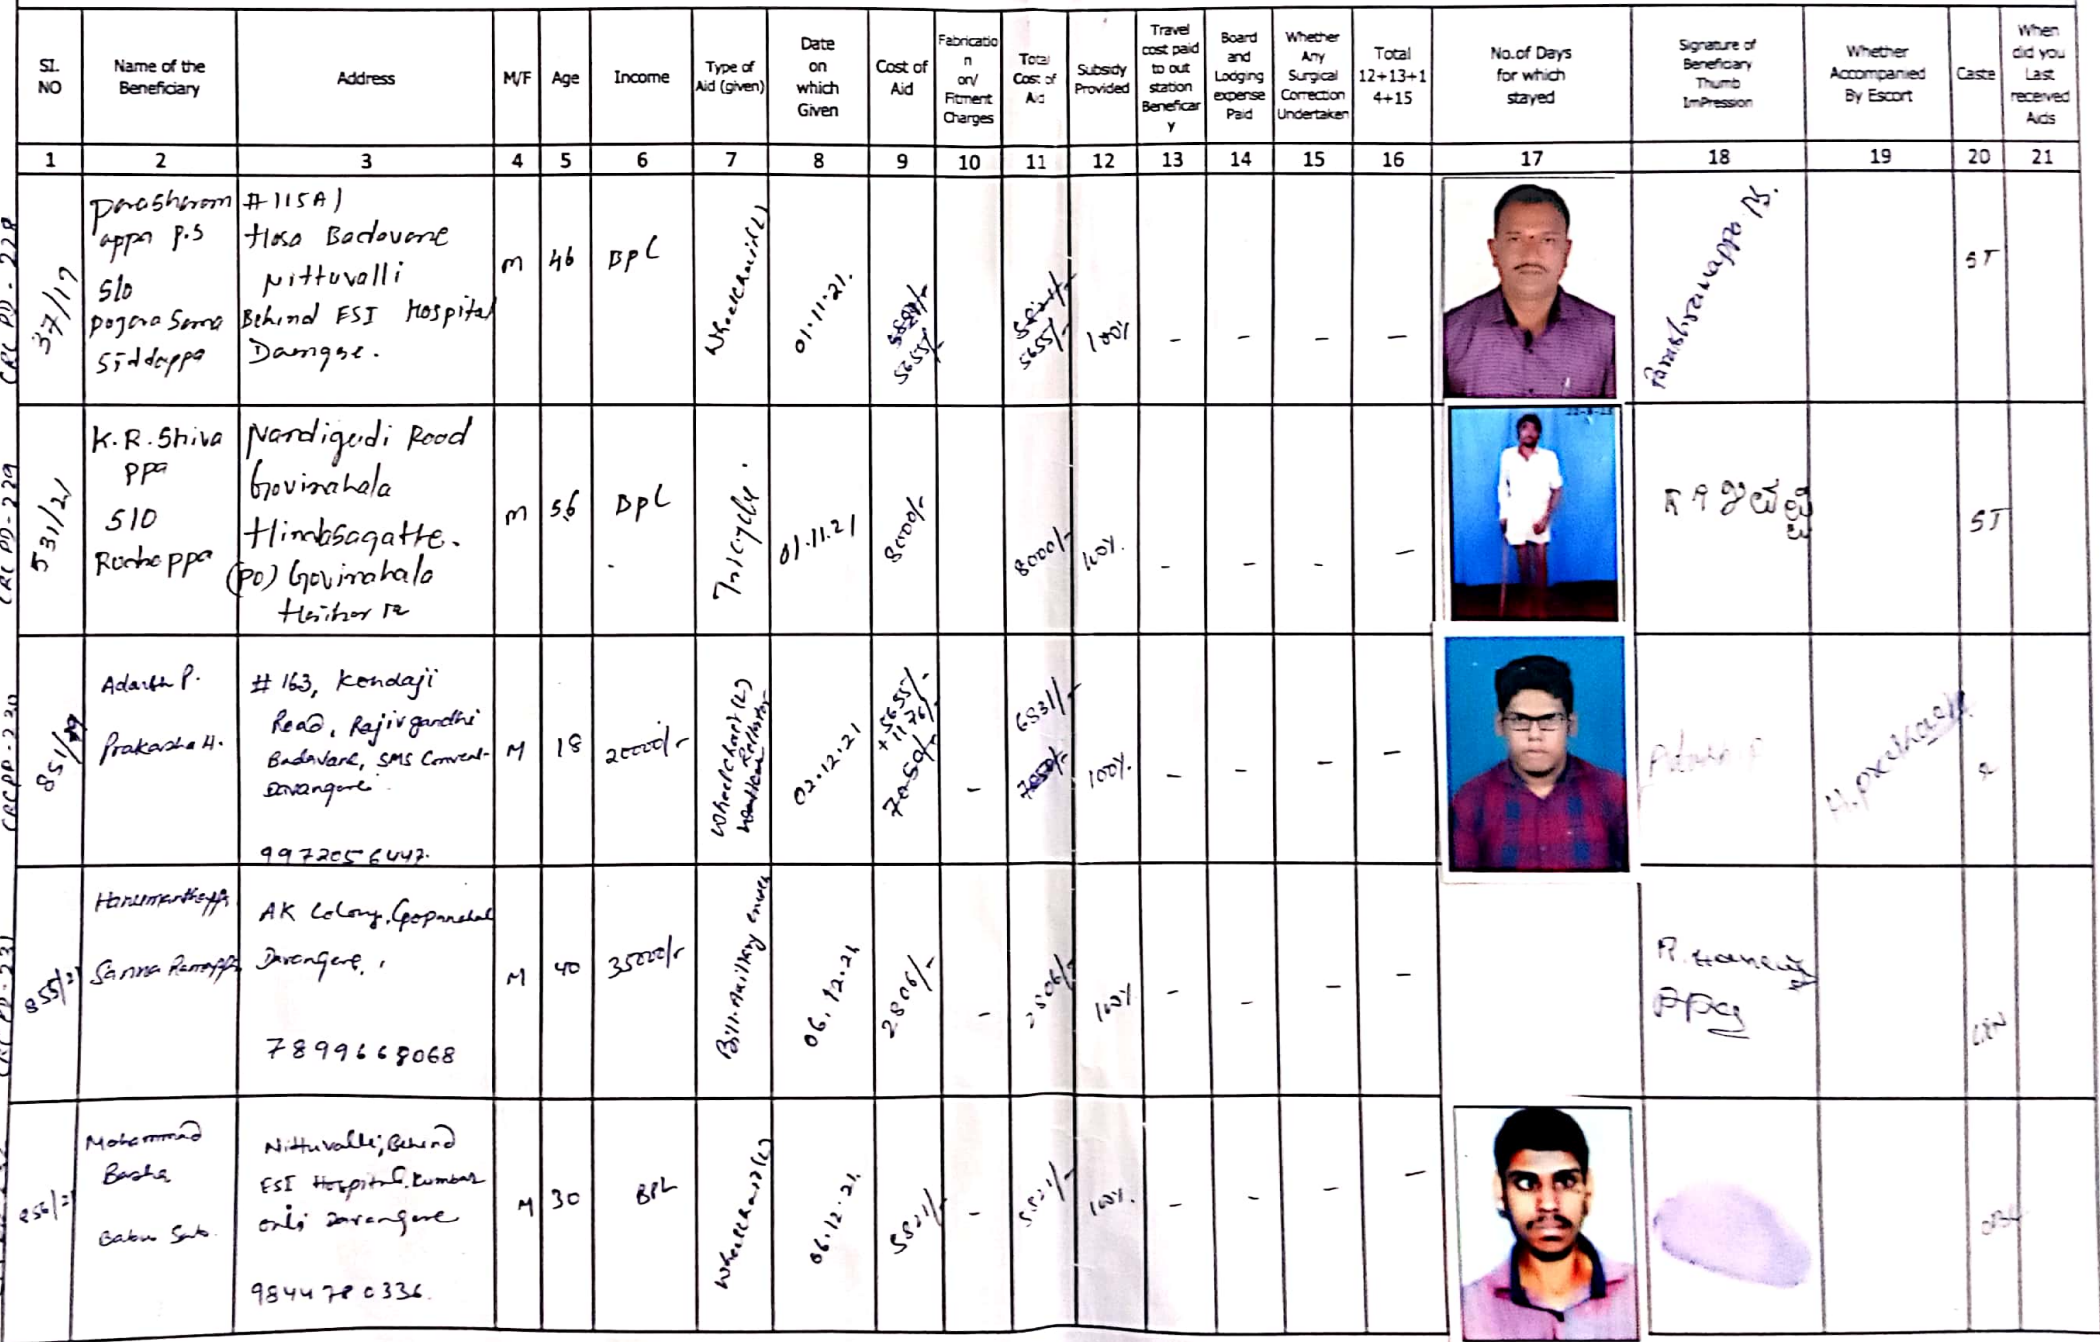 SI. NO
Name of the Beneficiary
Address
M/F
Age
Income
Type of Aid (given)
Date on which Given
Cost of Aid
Fabricatio n on/ Fitment Charges
Total Cost of Aid
Subsidy Provided
Travel cost paid to out station Beneficar y
Board and Lodging expense Paid
Whether Any Surgical Correction Undertaken
Total 12+13+1 4+15
No.of Days for which stayed
Signature of Beneficiary Thumb ImPression
Whether Accompanied By Escort
Caste
When did you Last received Aids
1 2 3 4 5 6 7 8 9 10 11 12 13 14 15 16 17 18 19 20 21
CRC PD - 228
37/17
Parasharam
appa P.S
S/o
Siddappa
#115A1
Hosa Badavane
Nittuvalli
Behind ESI Hospital
M
46
BPL
Wheelchair(L)
01.11.21.
5655/-
5655/-
100%
- - - -
Parashuramappa P.S.
ST
CRC PD - 229
531/21
K.R. Shiva
ppa
S/O
Nandigudi Road
Govinahala
(PO) Govinahala
M
56
BPL
Tricycle.
01.11.21
8000/-
8000/-
100%.
- - - -
ST
CRC PD - 230
851/
Adarsh P.
Prakasha H.
# 163, Kondaji
Road, Rajivgandhi
Badavane, SMS Convent
Davangere
9972056447.
M
18
20000/-
Wheelchair(L)
02.12.21
5655/-
+ 1176/-
7050/-
-
6831/-
100%.
- - - -
Adarsh P
H. Prakash
CRC PD - 231
855/21
Hanumanthappa
Sanna Ramappa
AK Colony, Gopanahal
Davangere.
7899668068
M
40
35000/-
06.12.21
2806/-
-
2806/-
100%
- - - -
856/21
Mohammad
Basha
Babu Sab.
Nittuvalli, Behind
ESI Hospital, Kumbar
Davangere
9844780336.
M
30
BPL
Wheelchair(L)
06.12.21.
5521/-
-
5521/-
100%.
- - - -